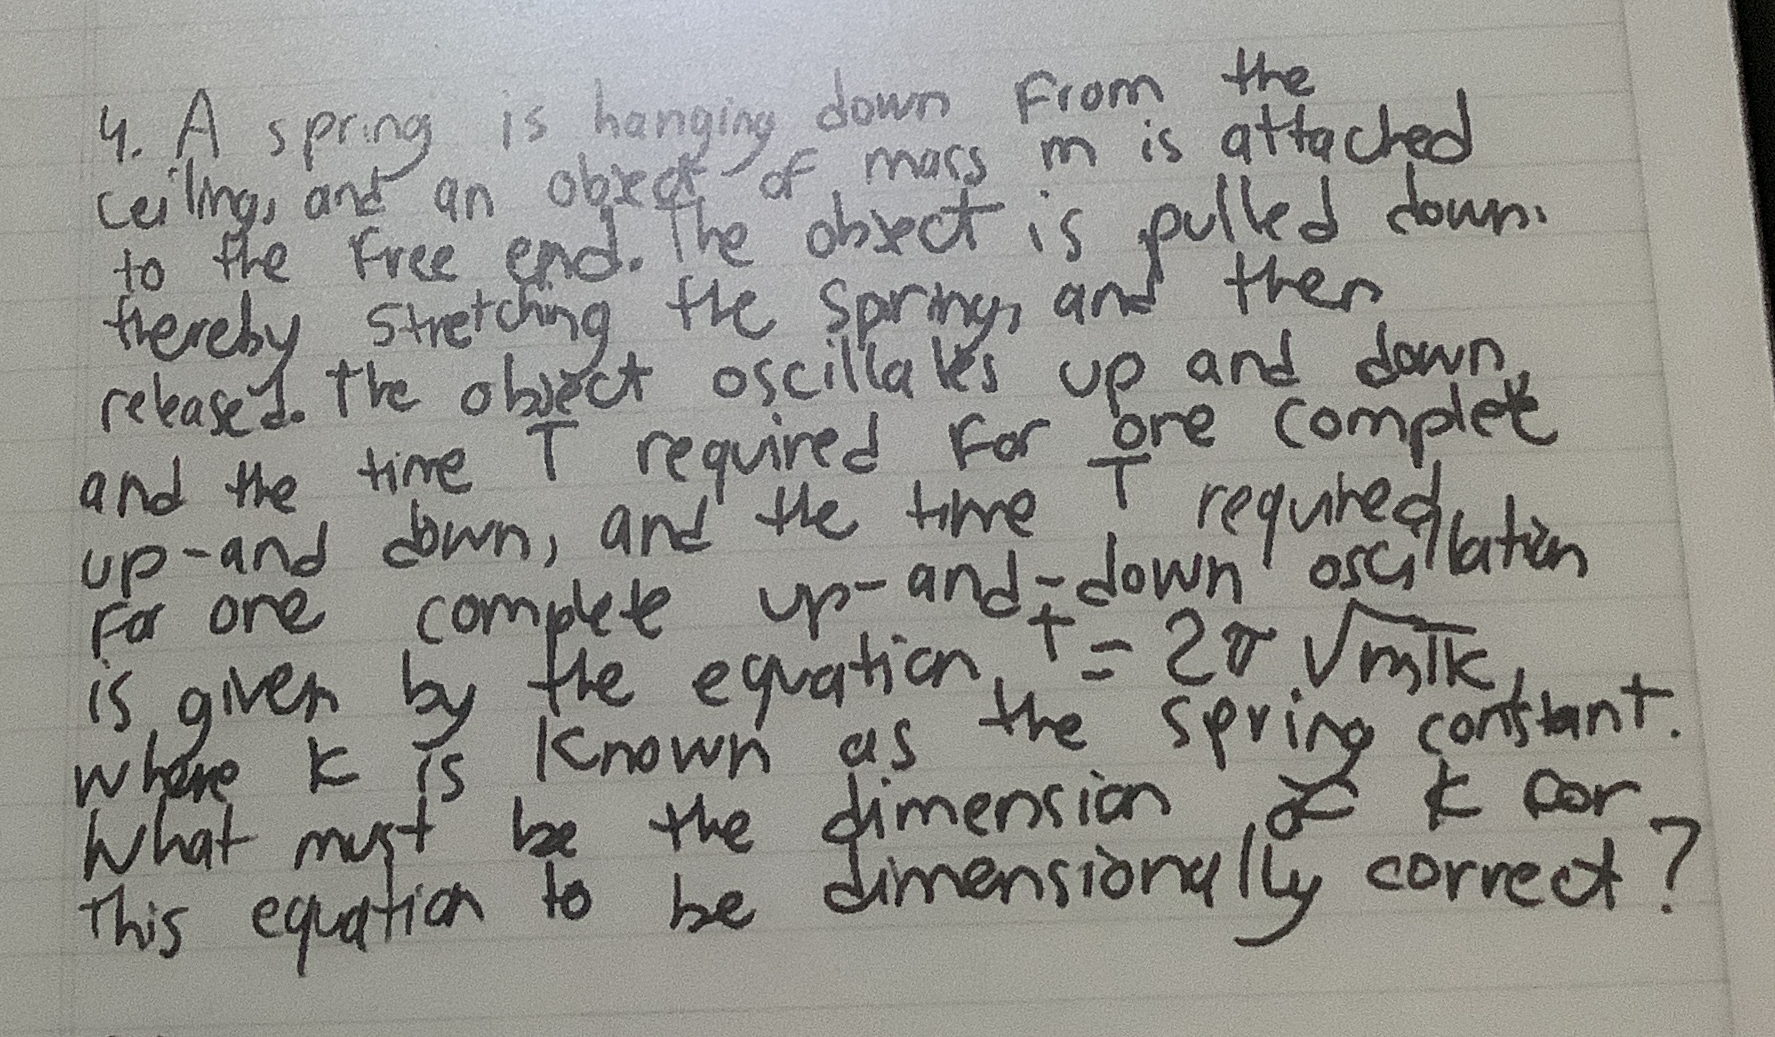 4. A spring is hanging down from the
ceiling, and an object of mass m is attached
to the free end. The object is pulled down.
thereby stretching the spring, and then
released. The object oscillates up and down,
and the time T required for one complete
up-and down, and the time T required
for one complete up-and-down oscillation
is given by the equation T = 2π √m/k,
where k is known as the spring constant.
What must be the dimension of k for
this equation to be dimensionally correct?